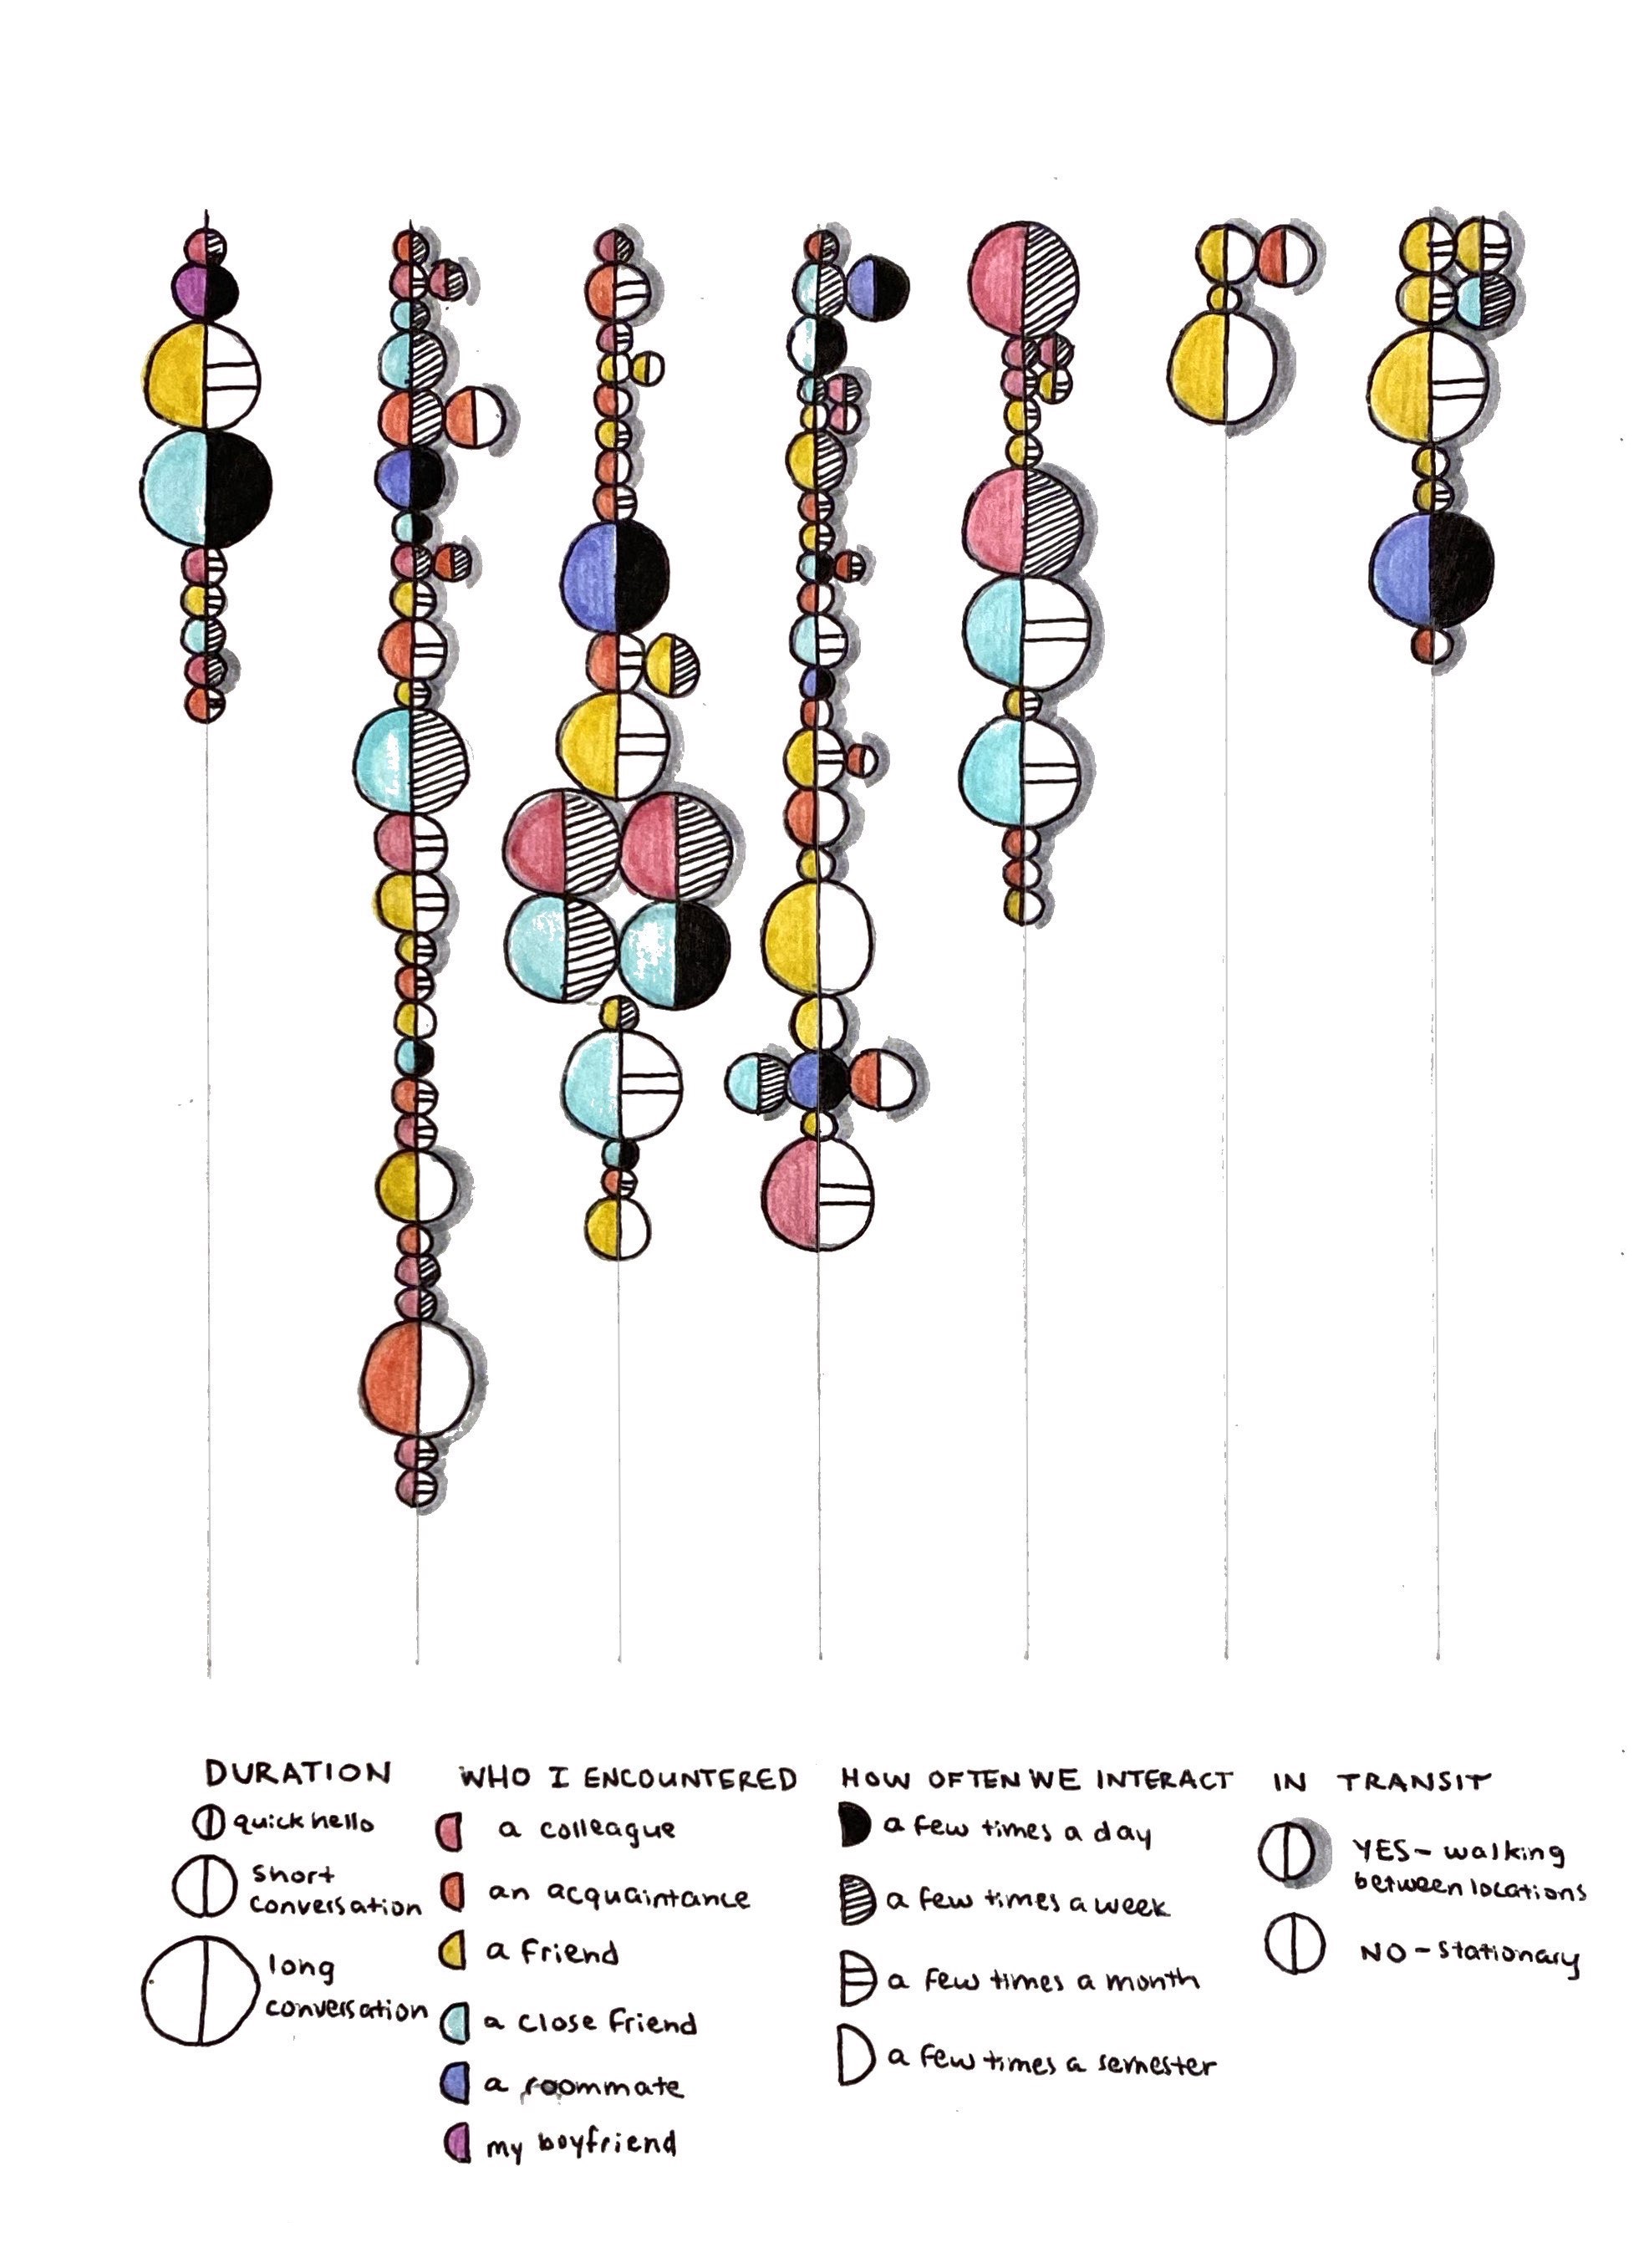 DURATION
quick hello
short
conversation
long
conversation
WHO I ENCOUNTERED
a colleague
an acquaintance
a friend
a close friend
a roommate
my boyfriend
HOW OFTEN WE INTERACT
a few times a day
a few times a week
a few times a month
a few times a semester
IN TRANSIT
YES - walking
between locations
NO - stationary